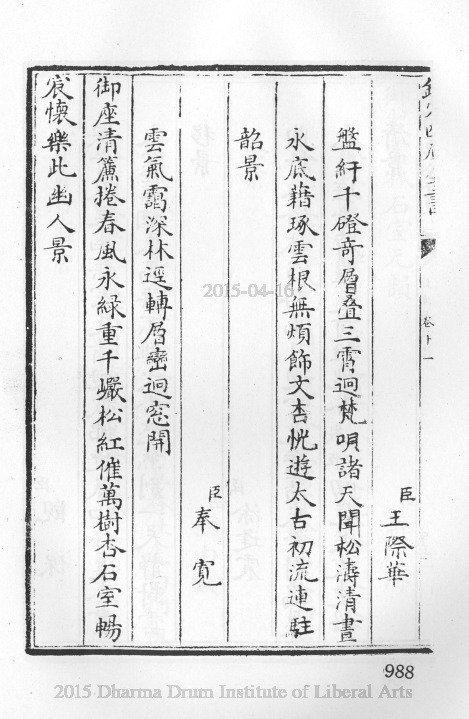 卷十一
臣王際華
盤紆千磴竒層疊三霄迥梵唄諸天聞松濤清晝
永底藉琢雲根無煩飾文杏恍遊太古初流連駐
韶景
臣奉寬
雲氣靄深林逕轉層巒迥窓開
御座清簾捲春風永緑重千巘松紅催萬樹杏石室暢
宸懷樂此幽人景
2015-04-16
988
2015 Dharma Drum Institute of Liberal Arts